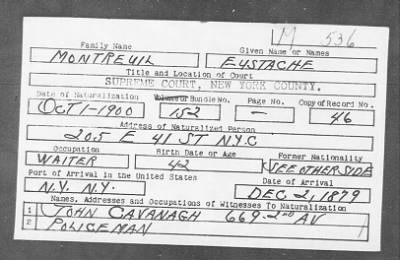 M 536
Family Name Given Name or Names
MONTREUIL EUSTACHE
Title and Location of Court
SUPREME COURT, NEW YORK COUNTY.
Date of Naturalization Volume or Bundle No. Page No. Copy of Record No.
OCT 1-1900 152 — 46
Address of Naturalized Person
205 E 41 ST N.Y.C
Occupation Birth Date or Age Former Nationality
WAITER 42 SEE OTHER SIDE
Port of Arrival in the United States Date of Arrival
N.Y. N.Y. DEC. 2, 1879
Names, Addresses and Occupations of Witnesses To Naturalization
1 JOHN CAVANAGH 669-2ND AV
2 POLICEMAN